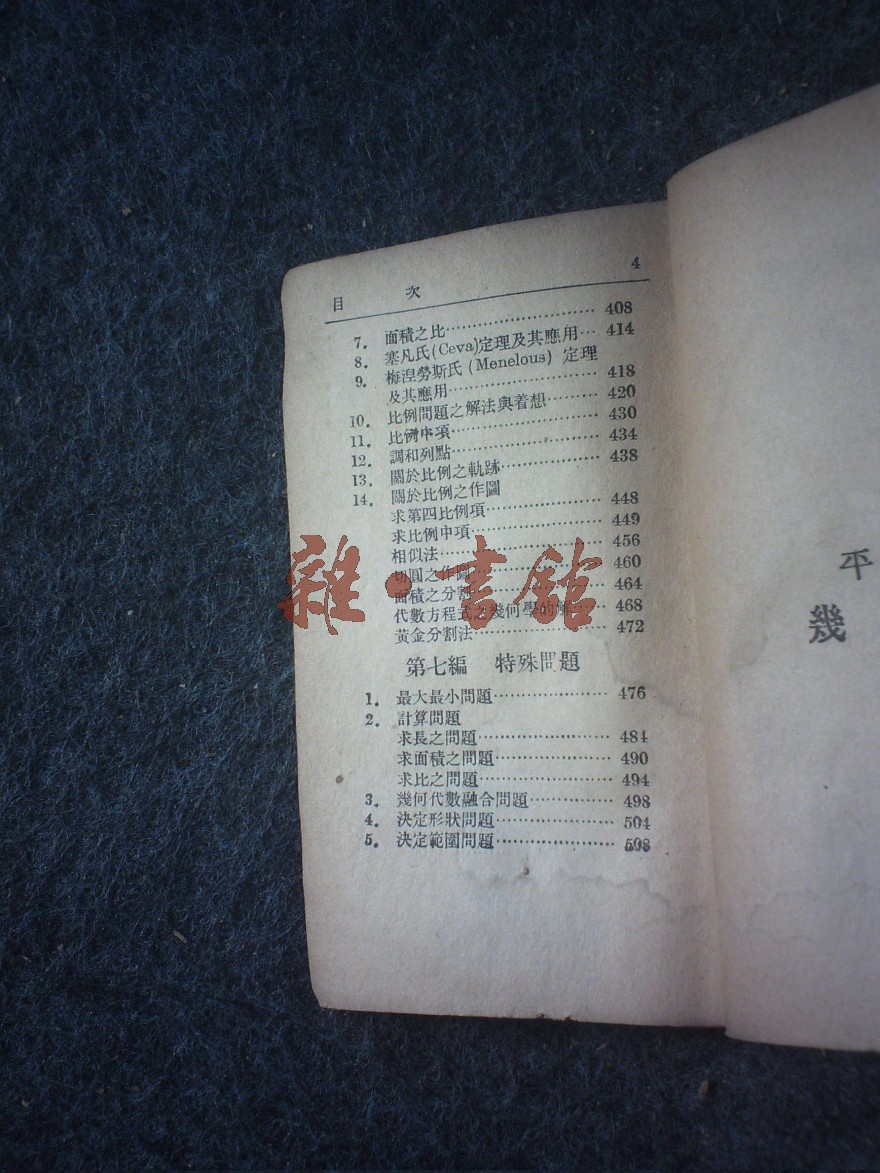 目 次 4
7. 面積之比 408
8. 塞凡氏(Ceva)定理及其應用 414
9. 梅涅勞斯氏(Menelous)定理
及其應用 418
10. 比例問題之解法與着想 420
11. 比例中項 430
12. 調和列點 434
13. 關於比例之軌跡 438
14. 關於比例之作圖
求第四比例項 448
求比例中項 449
相似法 456
切圓之作圖 460
面積之分割 464
代數方程式之幾何學的解 468
黃金分割法 472
第七編 特殊問題
1. 最大最小問題 476
2. 計算問題
求長之問題 484
求面積之問題 490
求比之問題 494
3. 幾何代數融合問題 498
4. 決定形狀問題 504
5. 決定範圍問題 508
雜·書館
平
幾